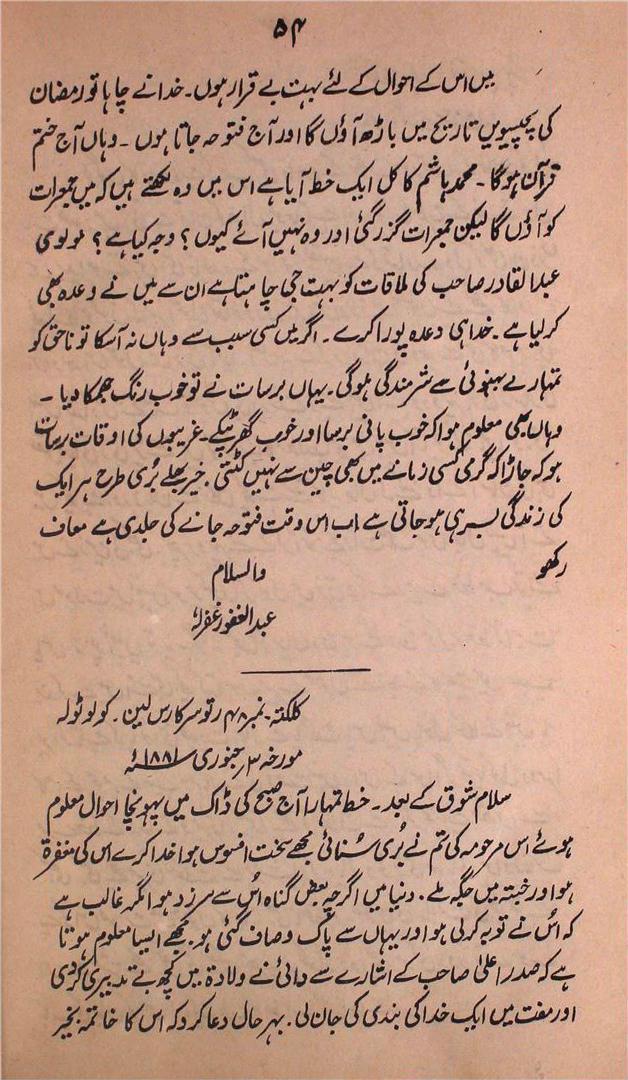 ۵۴
میں اس کے احوال کے لئے بہت بے قرار ہوں۔ خدا نے چاہا تو رمضان
کی پچیسویں تاریخ میں باڑھ آؤں گا اور آج فتوحہ جاتا ہوں۔ وہاں آج ختم
قرآن ہوگا۔ محمد ہاشم کا کل ایک خط آیا ہے اس میں وہ لکھتے ہیں کہ میں جمعرات
کو آؤں گا لیکن جمعرات گزر گئی اور وہ نہیں آئے کیوں؟ وجہ کیا ہے؟ مولوی
عبدالقادر صاحب کی ملاقات کو بہت جی چاہتا ہے ان سے میں نے وعدہ بھی
کر لیا ہے۔ خدا ہی وعدہ پورا کرے۔ اگر میں کسی سبب سے وہاں نہ آسکا تو ناحق کو
تمہارے بہنوئی سے شرمندگی ہوگی۔ یہاں برسات نے تو خوب رنگ جمکا دیا۔
وہاں بھی معلوم ہوا کہ خوب پانی برسا اور خوب گھر ٹپکے۔ غریبوں کی اوقات برسات
ہو کہ جاڑا کہ گرمی کسی زمانے میں بھی چین سے نہیں کٹتی۔ خیر بھلے بُری طرح ہر ایک
کی زندگی بسر ہی ہو جاتی ہے اب اس وقت فتوحہ جانے کی جلدی ہے معاف
رکھو
والسلام
عبدالغفور غفرلہٗ
کلکتہ۔ نمبر ۴۸ رتو سرکارس لین۔ کولوٹولہ
مورخہ ۳؍ جنوری ۱۸۸۱ء
سلام شوق کے بعد۔ خط تمہارا آج صبح کی ڈاک میں پہونچا احوال معلوم
ہوئے اس مرحومہ کی تم نے بُری سُنائی مجھے سخت افسوس ہوا خدا کرے اس کی مغفرۃ
ہو اور جنتہ میں جگہ ملے۔ دنیا میں اگرچہ بعض گناہ اُس سے سرزد ہوا مگر غالب ہے
کہ اُس نے توبہ کر لی ہو اور یہاں سے پاک و صاف گئی ہو۔ مجھے ایسا معلوم ہوتا
ہے کہ صدر اعلیٰ صاحب کے اشارے سے دائی نے ولادۃ میں کچھ بے تدبیری کر دی
اور مفت میں ایک خدا کی بندی کی جان لی۔ بہر حال دعا کرو کہ اس کا خاتمہ بخیر